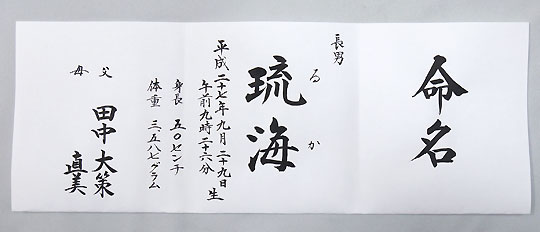 命名
長男
琉海
るか
平成二十七年九月二十九日
午前九時二十六分 生
身長 五〇センチ
体重 三、五八七グラム
父 田中 大策
母 直美